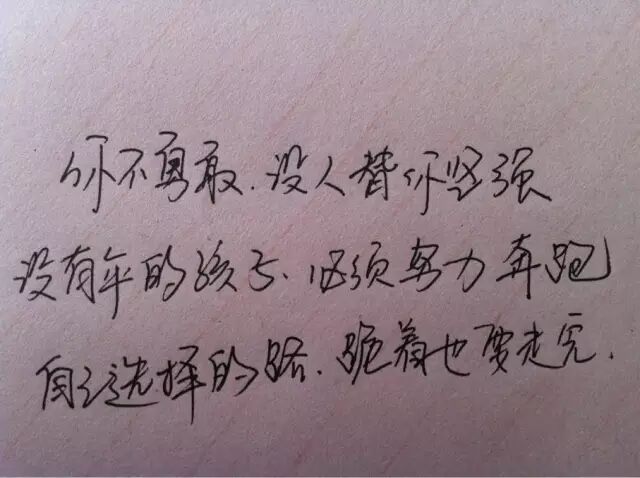 你不勇敢.没人替你坚强
没有伞的孩子、必须努力奔跑
自己选择的路.跪着也要走完.